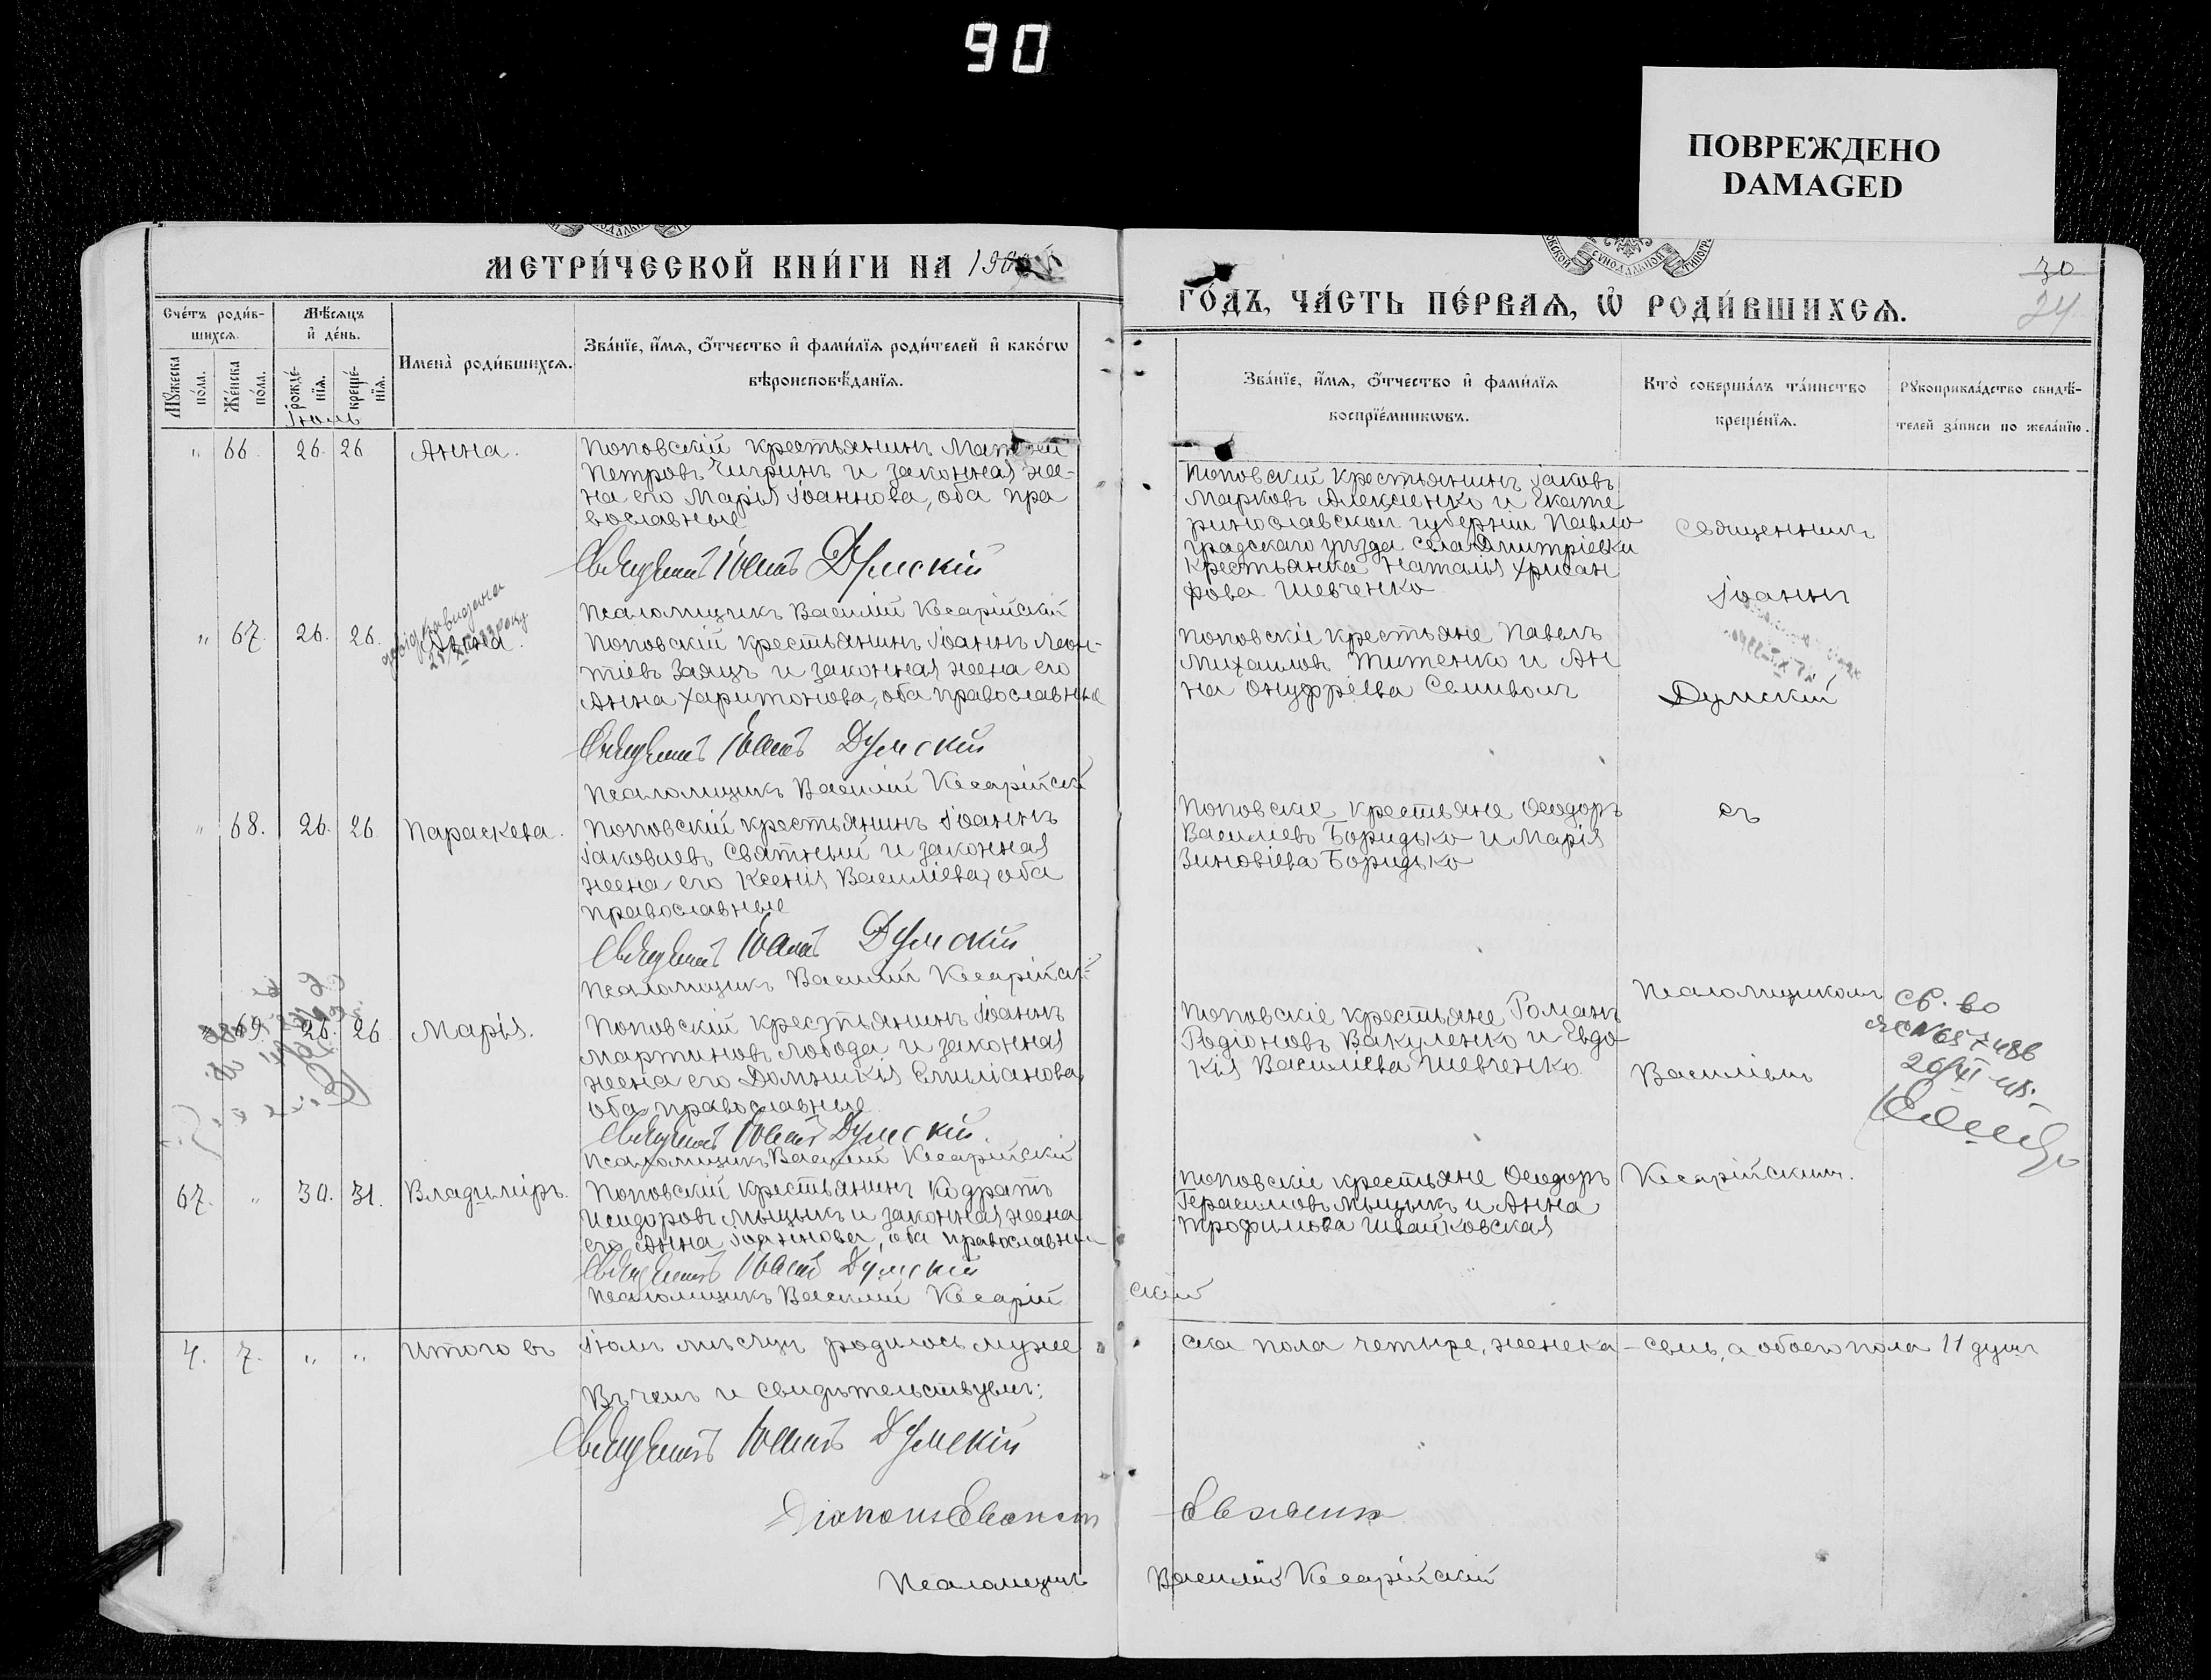 90
ПОВРЕЖДЕНО
DAMAGED
МЕТРИ́ЧЕСКОЙ КНИ́ГИ НА 190
ГО́ДЪ, ЧА́СТЬ ПЕ́РВАѦ, Ѡ҆ РОДИ́ВШИХСѦ.
30
24
Сче́тъ роди́в-
шихсѧ.
Мꙋжеска по́ла.
Же́нска по́ла.
Мѣ́сѧцъ
и҆ де́нь.
рожде́-
нїѧ.
креще́-
нїѧ.
Имена̀ роди́вшихсѧ.
Зва́нїе, и҆́мѧ, ѻ҆́тчество и҆ фами́лїѧ роди́телей и҆ како́гѡ
вѣроисповѣ́данїѧ.
Зва́нїе, и҆́мѧ, ѻ҆́тчество и҆ фами́лїѧ
воспрїе́мникѡвъ.
Кто̀ соверша́лъ та́инство
креще́нїѧ.
Рꙋкоприкла́дство свидѣ́-
телей за́писи по жела́нїю.
Іюль
" 66 26. 26 Анна.
Поповскій крестьянинъ Матѳей
Петровъ Чигринъ и законная же-
на его Марія Іоаннова, оба пра
вославные
Священникъ Іоаннъ Думскій
Псаломщикъ Василій Кесарійскій
Поповскій крестьянинъ Іаковъ
Марковъ Алексѣенко и Екате
ринославской губерніи Павло
градскаго уѣзда села Дмитріевки
крестьянка Наталія Хрисан
фова Шевченко
Священникъ
Іоаннъ
" 67. 26. 26. Анна.
Поповскій крестьянинъ Іоаннъ Леон-
тіевъ Заяцъ и законная жена его
Анна Харитонова, оба православные
Священникъ Іоаннъ Думскій
Псаломщикъ Василій Кесарійскій
Поповскіе крестьяне Павелъ
Михаиловъ Титенко и Ан
на Онуфріева Семиволъ
Думскій
" 68. 26. 26 Параскева.
Поповскій крестьянинъ Іоаннъ
Іаковлевъ Сватный и законная
жена его Ксенія Василіева, оба
православные
Священникъ Іоаннъ Думскій
Псаломщикъ Василій Кесарійскій
Поповскіе крестьяне Ѳеодоръ
Василіевъ Боридько и Марія
Зиновіева Боридько
съ
69. 26. 26 Марія.
Поповскій крестьянинъ Іоаннъ
Мартиновъ Лобода и законная
жена его Домникія Емиліанова,
оба православные
Священникъ Іоаннъ Думскій.
Псаломщикъ Василій Кесарійскій
Поповскіе крестьяне Романъ
Родіоновъ Вакуленко и Евдо
кія Василіева Шевченко
Псаломщикомъ
Василіемъ
св. во
67. " 30. 31. Владиміръ.
Поповскій крестьянинъ Кодратъ
Исидоровъ Мыцыкъ и законная жена
его Анна Іоаннова, оба православные
Священникъ Іоаннъ Думскій
Псаломщикъ Василій Кесарій
скій
Поповскіе крестьяне Ѳеодоръ
Герасимовъ Мыцыкъ и Анна
Трофимова Швайковская
Кесарійскимъ.
4. 7. " " Итого въ Іюлѣ мѣсяцѣ родилось муже ска пола четыре, женска – семь, а обоего пола 11 душъ
Въ чемъ и свидѣтельствуемъ:
Священникъ Іоаннъ Думскій
Псаломщикъ Василій Кесарійскій